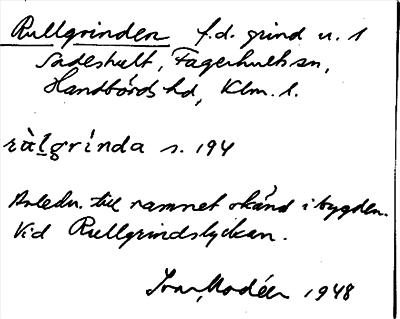 Rullgrinden f.d. grind u. 1
Sadeshult, Fagerhults sn,
Handbörds hd, Klm. l.
ràlgrínda s. 194
Anledn. till namnet okänd i bygden.
Vid Rullgrindslyckan.
Ivar Modéer 1948